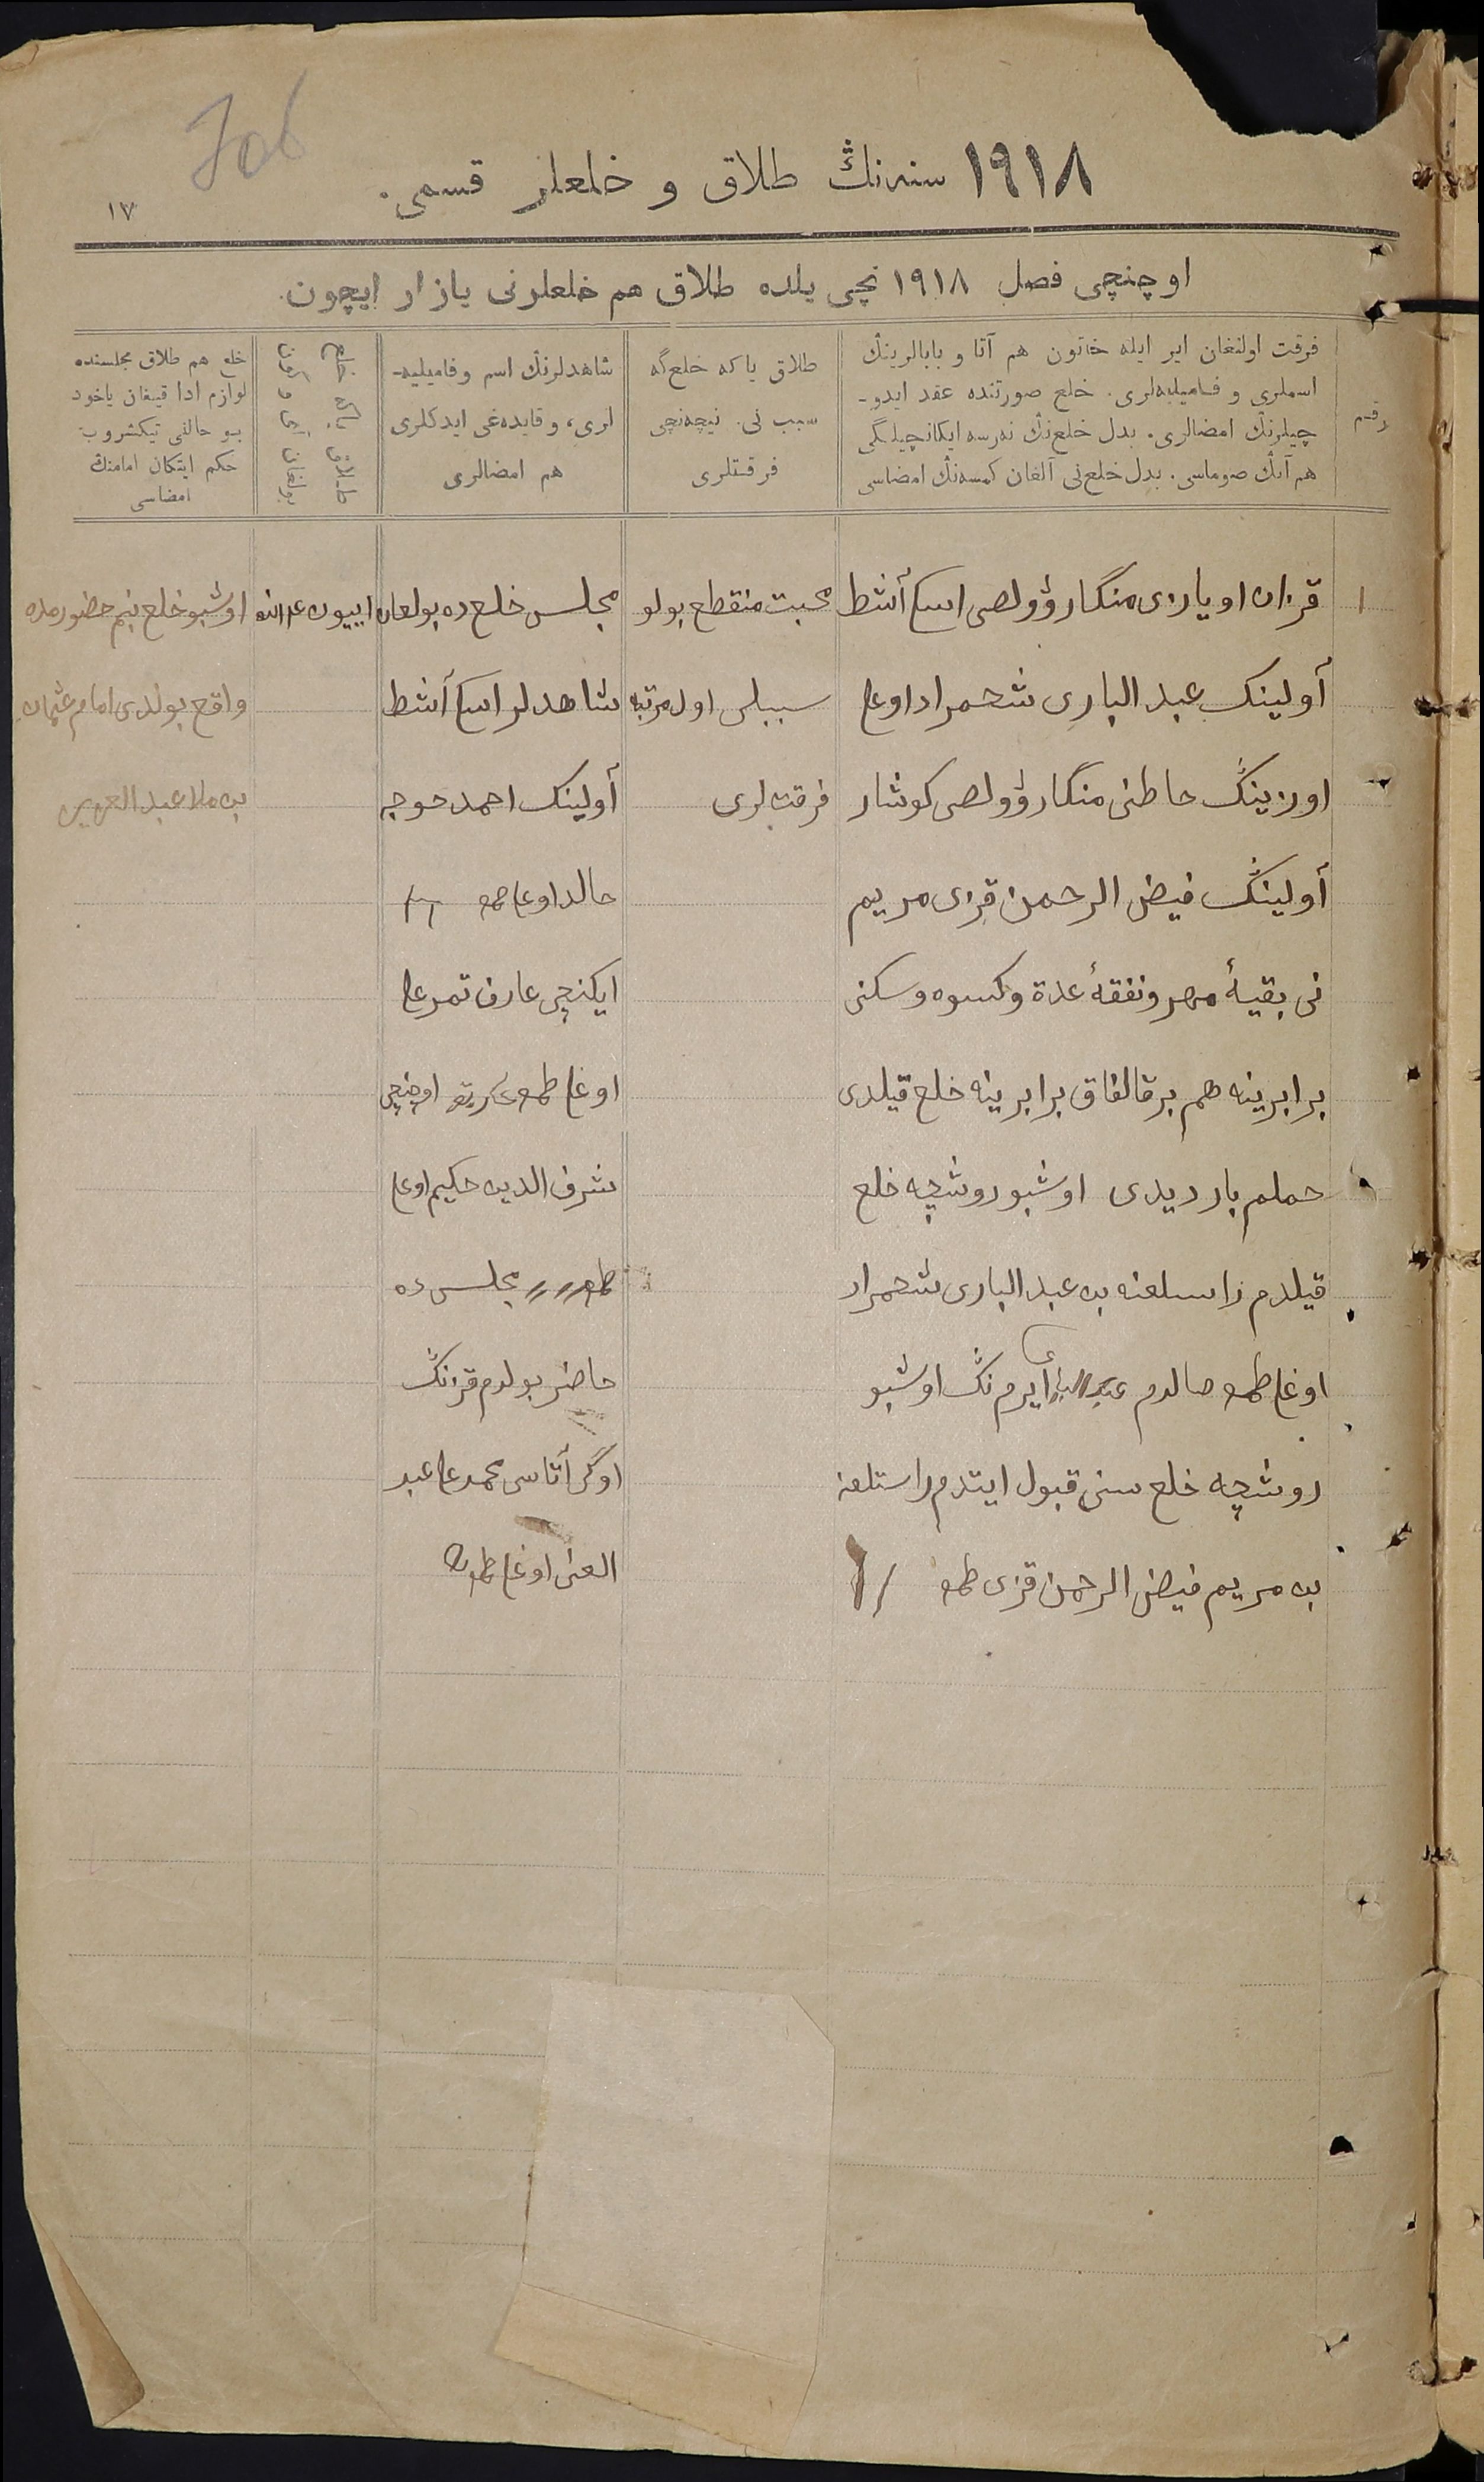 ١٩١٨ سنه‌نڭ طلاق و خلعلر قسمی.
١٧
اوچنچی فصل ١٩١٨ نچی یلده طلاق هم خلعلرنی یازار ایچون.
رقم
فرقت اولنغان ایر ایله خاتون هم آتا و بابالرینڭ
اسملری و فامیلیه‌لری. خلع صورتنده عقد ایدو-
چیلرنڭ امضالری. بدل خلع‌نڭ نه‌رسه ایکانچیلگی
هم آنڭ صوماسی. بدل خلع‌نی آلغان کمسه‌نڭ امضاسی
طلاق یا که خلع‌گه
سبب نی. نیچه‌نچی
فرقتلری
شاهدلرنڭ اسم و فامیلیه-
لری، و قایده‌غی ایدکلری
هم امضالری
طلاق یا که خلع
بولغان آی و کون
خلع هم طلاق مجلسنده
لوازم ادا قیلغان یاخود
بو حالنی تیکشروب
حکم ایتکان امامنڭ
امضاسی
١
قزان اویازی منگار وولصی اسکی آشط
أولینڭ عبد الباری شحمراد اوغلی
اوزینڭ خاطنی منگار وولصی کوشار
أولینڭ فیض الرحمن قزی مریم
نی بقیهٔ مهر و نفقهٔ عدة وکسوه وسکنی
برابرینه هم بر قالفاق برابرینه خلع قیلدی
حملم بار دیدی اوشبو روشچه خلع
قیلدم راستلغنه بن عبد الباری شحمراد
اوغلی طمغه صالدم ایرم نڭ اوشبو
روشچه خلع سنی قبول ایتدم راستلغنه
بن مریم فیض الرحمن قزی طمغه
محبت منقطع بولو
سببلی اول مرتبه
فرقتلری
مجلس خلع ده بولغان
شاهدلر اسکی آشط
أولینڭ احمد خوجه
خالد اوغلی طمغه
ایکنچی عارف تمرعلی
اوغلی طمغه اوچنچی
شرف الدین حکیم اوغلی
طمغه مجلس ده
حاضر بولدم قزنڭ
اوگی آتاسی محمد علی عبد
الغنی اوغلی طمغه
اییون
اوشبو خلع بنم حضورمده
واقع بولدی امام عثمان
بن ملا عبد العزیز